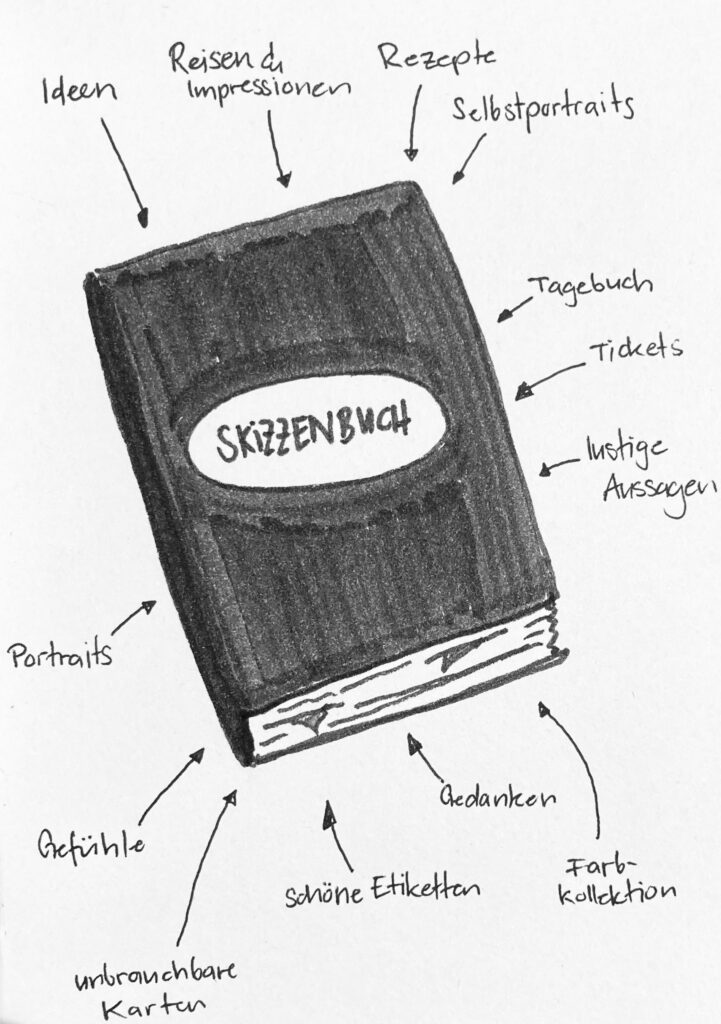 Ideen
Reisen &
Impressionen
Rezepte
Selbstportraits
Tagebuch
Tickets
lustige
Aussagen
SKIZZENBUCH
Portraits
Gefühle
unbrauchbare
Karten
schöne Etiketten
Gedanken
Farb-
kollektion